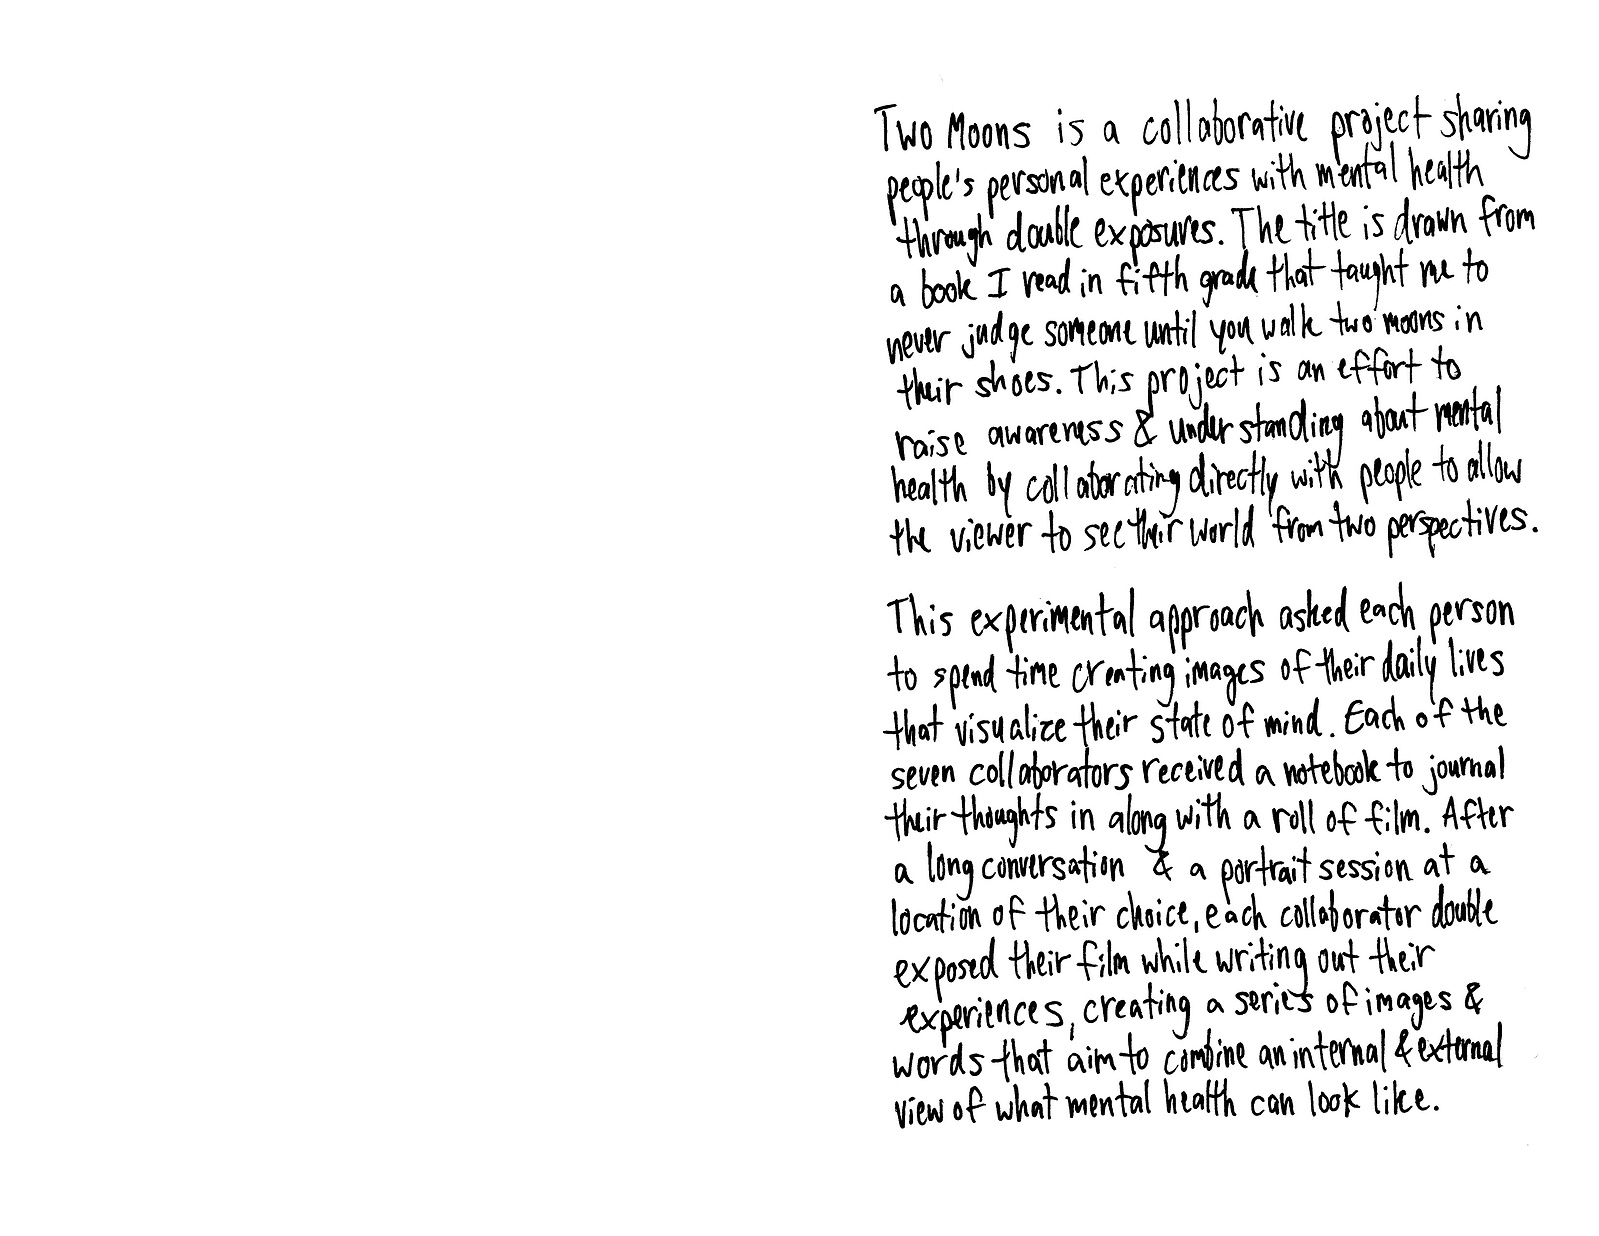 Two Moons is a collaborative project sharing
people's personal experiences with mental health
through double exposures. The title is drawn from
a book I read in fifth grade that taught me to
never judge someone until you walk two moons in
their shoes. This project is an effort to
raise awareness & understanding about mental
health by collaborating directly with people to allow
the viewer to see their world from two perspectives.
This experimental approach asked each person
to spend time creating images of their daily lives
that visualize their state of mind. Each of the
seven collaborators received a notebook to journal
their thoughts in along with a roll of film. After
a long conversation & a portrait session at a
location of their choice, each collaborator double
exposed their film while writing out their
experiences, creating a series of images &
words that aim to combine an internal & external
view of what mental health can look like.